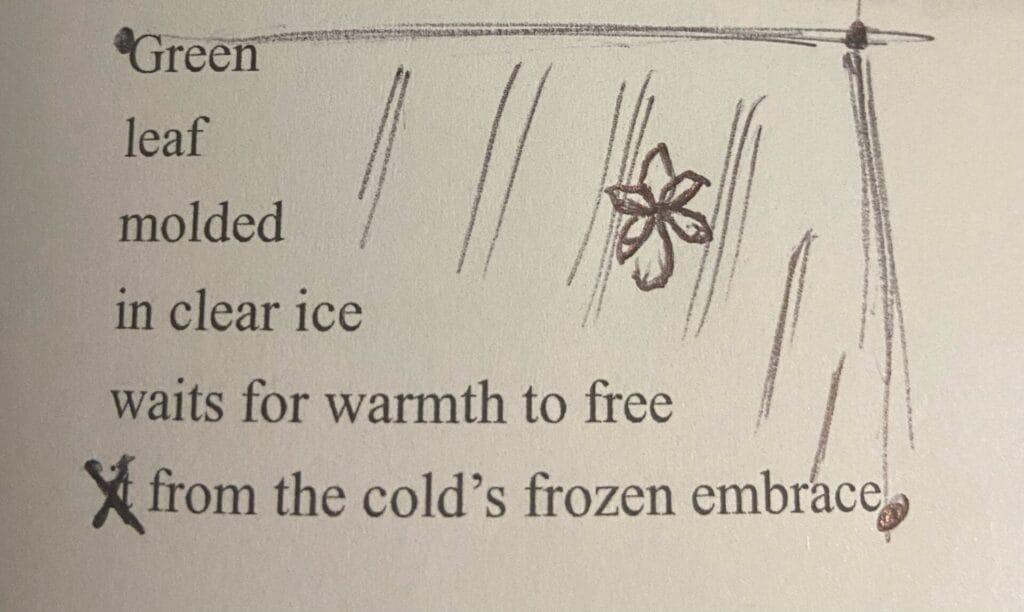 Green
leaf
molded
in clear ice
waits for warmth to free
it from the cold’s frozen embrace